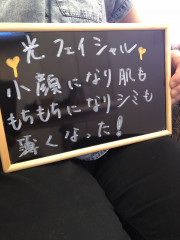 光フェイシャル
小顔になり肌も
もちもちになりシミも
薄くなった!